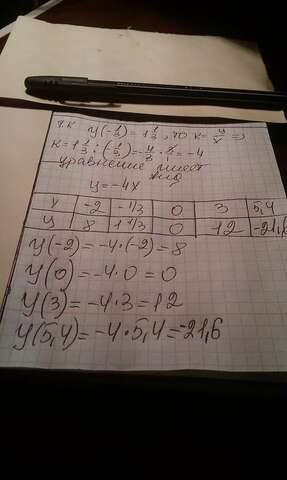 т.к y(-1/3)=1 1/3, то к=y/x =>
к=1 1/3:(-1/3)=-4/3·3/1=-4
уравнение имеет
вид
y=-4x
x -2 -1/3 0 3 5,4
y 8 1 1/3 0 -12 -21,6
y(-2)=-4·(-2)=8
y(0)=-4·0=0
y(3)=-4·3=12
y(5,4)=-4·5,4=-21,6